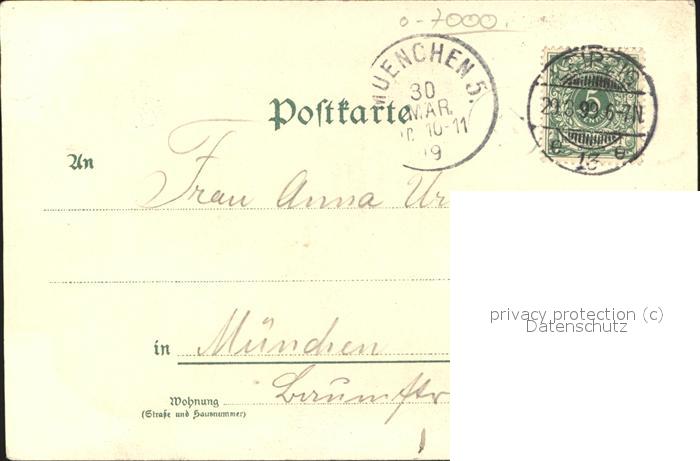 o-7000.
MUENCHEN 5.
30
MAR.
10-11
9
5
29.3.99.6-7N
13
Postkarte
An
Frau Anna Ur
in München
Wohnung Baumstr
(Straße und Hausnummer)
privacy protection (c)
Datenschutz